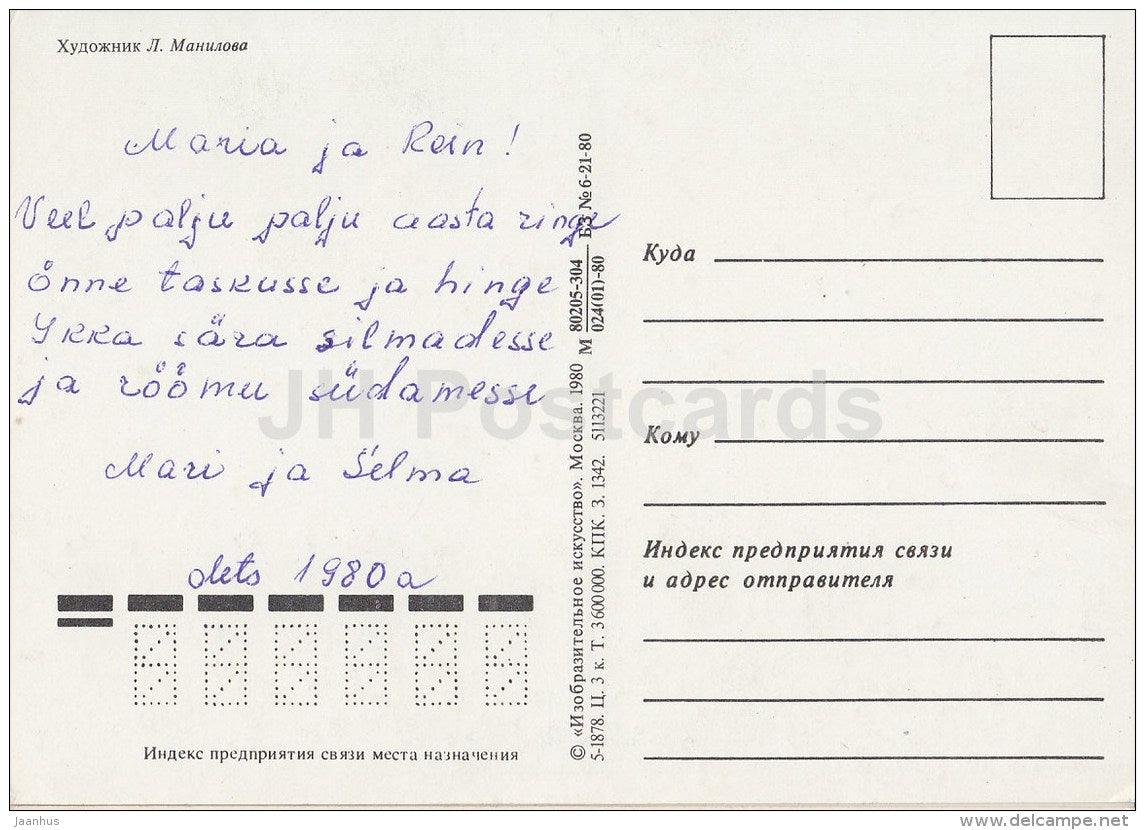 Художник Л. Манилова
Maria ja Rein!
Veel palju palju aasta ringe
õnne taskusse ja hinge
Ikka sära silmadesse
ja rõõmu südamesse
Mari ja Selma
dets 1980 a
Индекс предприятия связи места назначения
© «Изобразительное искусство». Москва. 1980
5-1878. Ц. 3 к. Т. 3 600 000. КПК. З. 1342. 5113221
М 80205-304
024(01)-80
БЗ № 6-21-80
Куда
Кому
Индекс предприятия связи
и адрес отправителя
JH Postcards
Jaanhus
delcampe.net